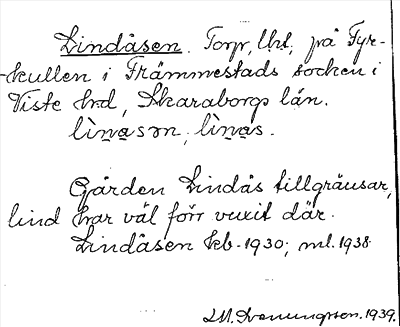 Lindåsen. Torp, Uhl, på Fyr-
kullen i Främmestads socken i
Viste hd, Skaraborgs län.
lìnasən, lìnas.
Gården Lindås tillgränsar,
lind har väl förr vuxit där.
Lindåsen kb. 1930; ml. 1938
1939.